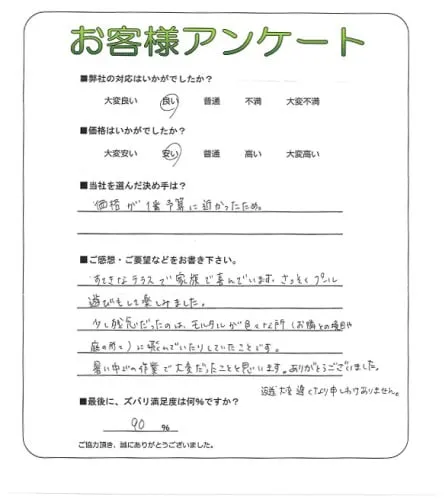 お客様アンケート
■弊社の対応はいかがでしたか?
大変良い 良い 普通 不満 大変不満
■価格はいかがでしたか?
大変安い 安い 普通 高い 大変高い
■当社を選んだ決め手は?
価格が1番予算に近かったため。
■ご感想・ご要望などをお書き下さい。
すてきなテラスで家族で喜んでいます。さっそくプール
遊びもして楽しみました。
少し残念だったのは、モルタルが色々な所(お隣との境目や
庭の所々)に飛んでいたりしていたことです。
暑い中での作業で大変だったことと思います。ありがとうございました。
返送大変遅くなり申しわけありません。
■最後に、ズバリ満足度は何%ですか?
90 %
ご協力頂き、誠にありがとうございました。